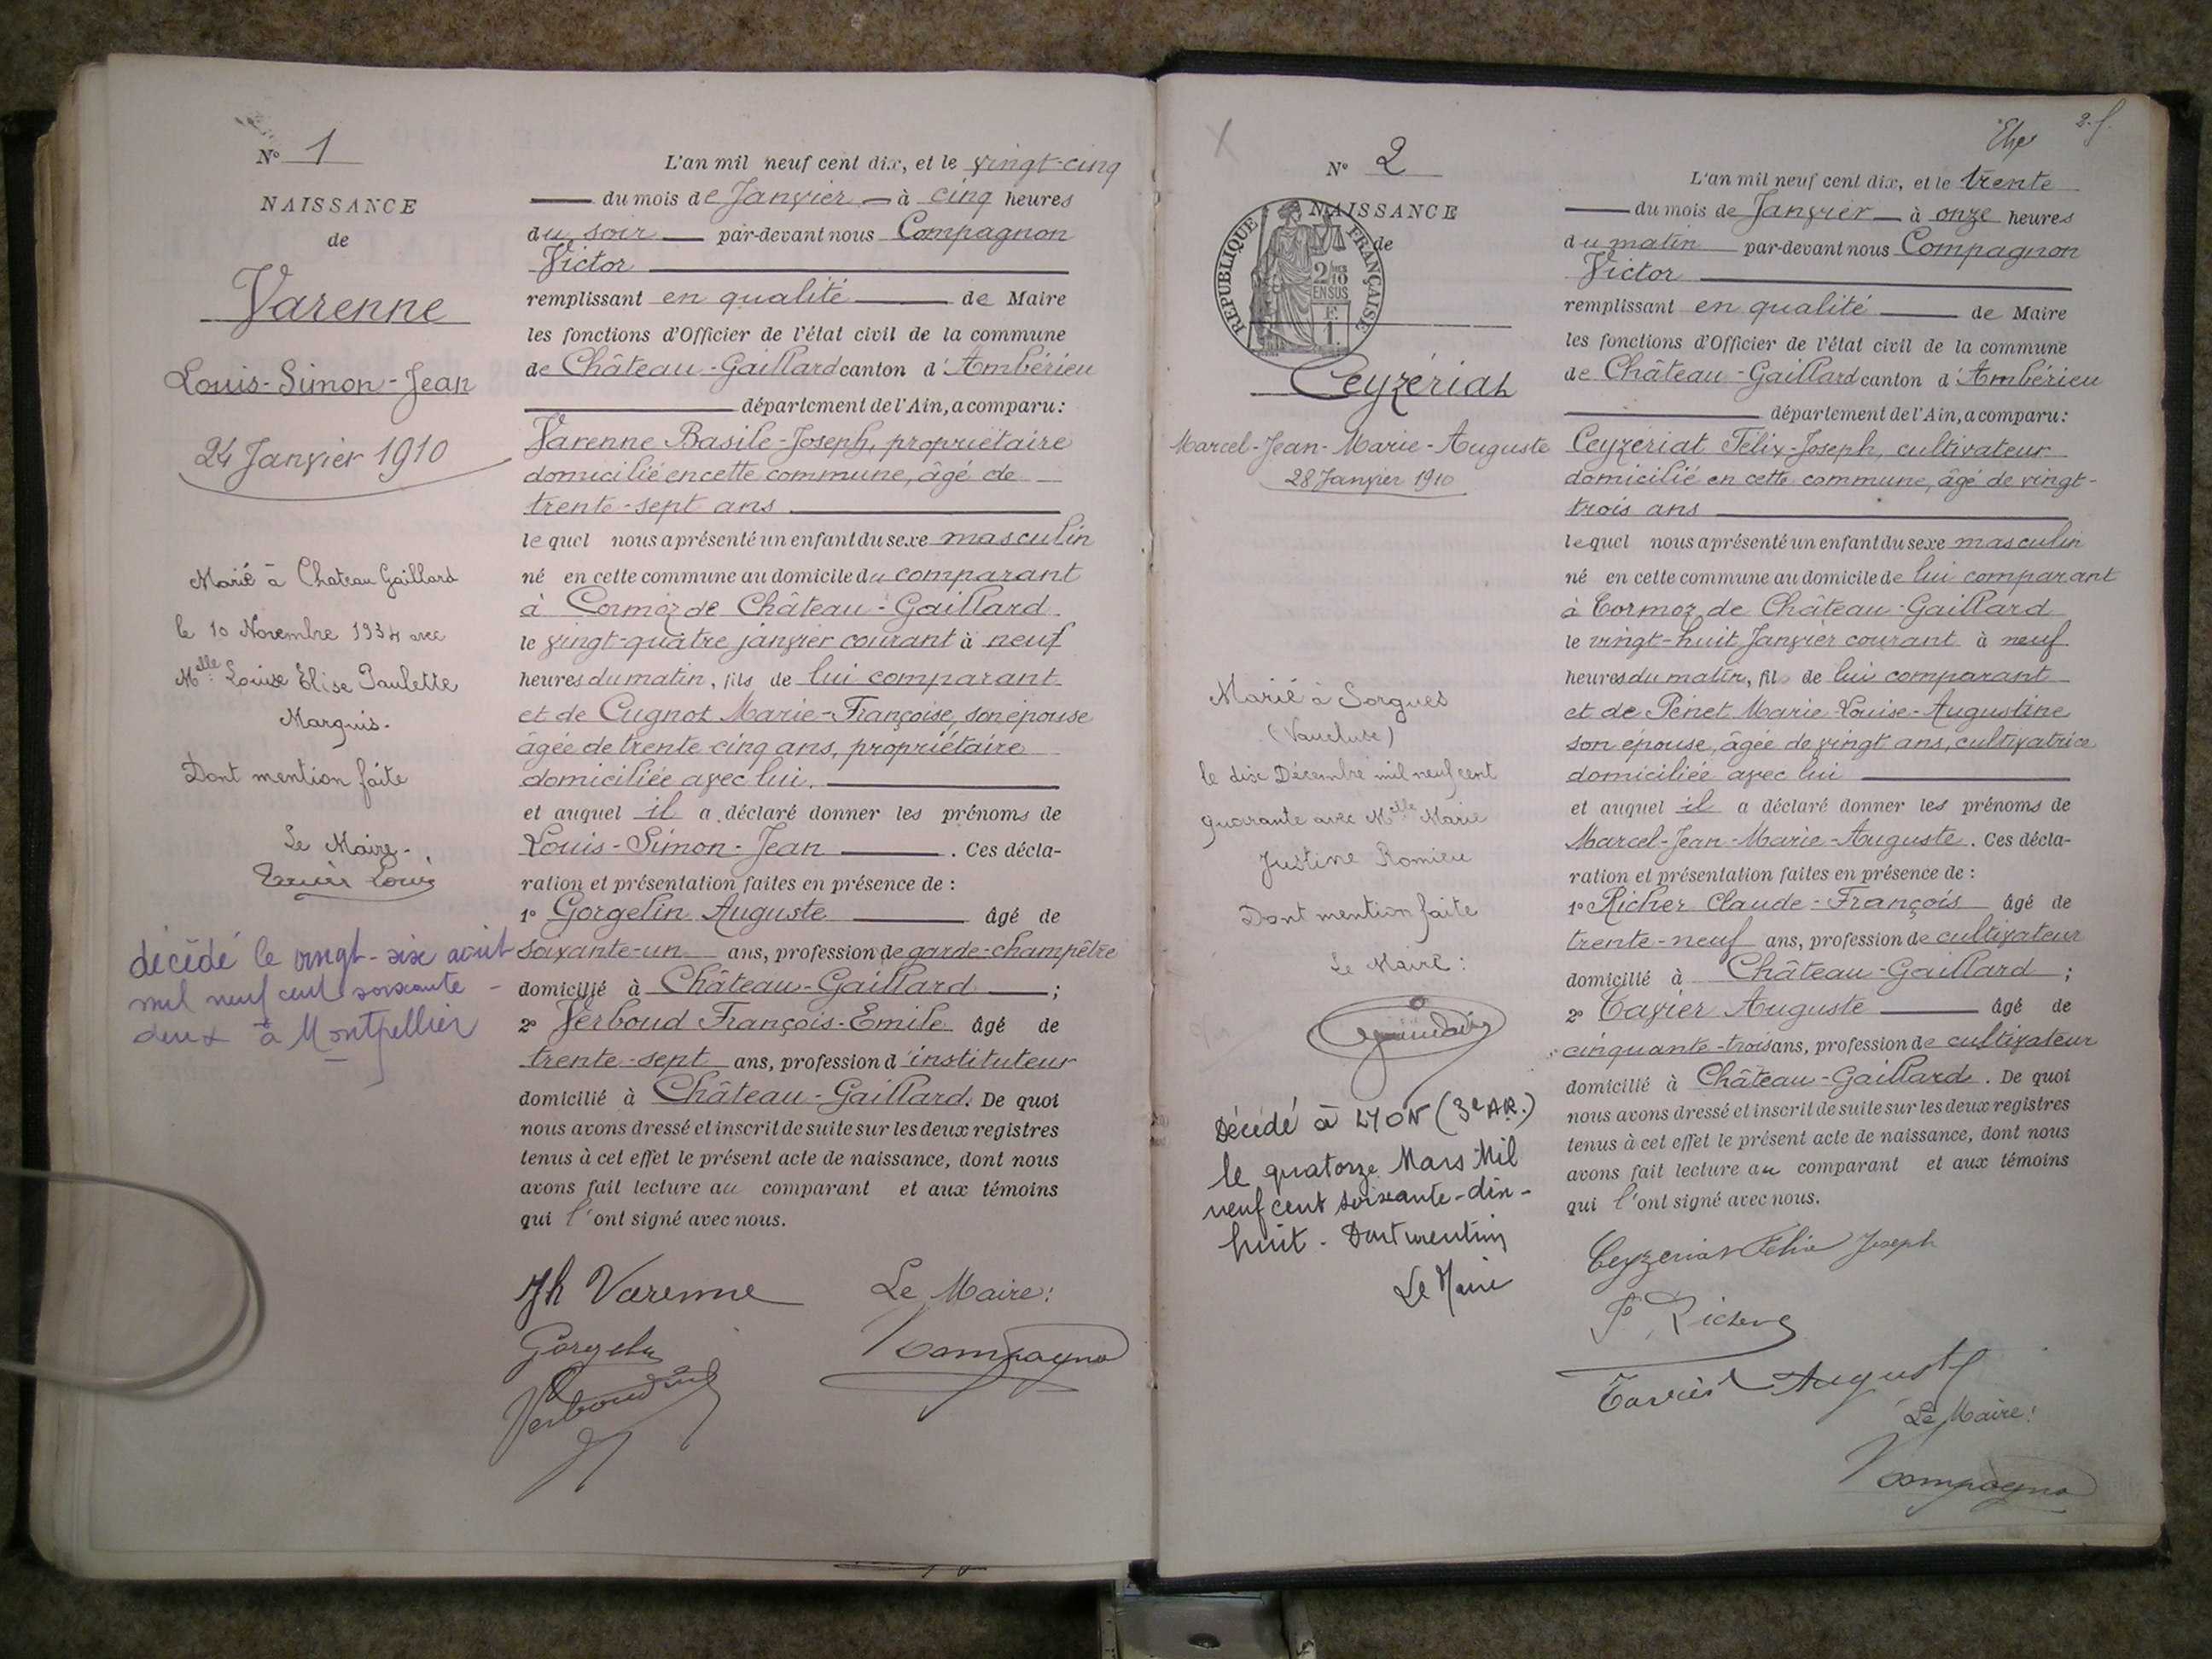 N° 1
NAISSANCE
de
Varenne
Louis-Simon-Jean
24 Janvier 1910
Marié à Chateau Gaillard
le 10 Novembre 1934 avec
Mlle Louise Elise Paulette
Marguis.
Dont mention faite
Le Maire.
décédé le vingt-six août
mil neuf cent soixante-
deux à Montpellier
L'an mil neuf cent dix, et le vingt-cinq
du mois de Janvier à cinq heures
du soir par-devant nous Compagnon
Victor
remplissant en qualité de Maire
les fonctions d'Officier de l'état civil de la commune
de Château-Gaillard canton d'Ambérieu
département de l'Ain, a comparu:
Varenne Basile-Joseph, propriétaire
domicilié en cette commune, âgé de
trente-sept ans
lequel nous a présenté un enfant du sexe masculin
né en cette commune au domicile du comparant
à Cormoz de Château-Gaillard
le vingt-quatre janvier courant à neuf
heures du matin, fils de lui comparant
et de Cugnot Marie-Françoise, son épouse
âgée de trente cinq ans, propriétaire
domiciliée avec lui.
et auquel il a déclaré donner les prénoms de
Louis-Simon-Jean. Ces décla-
ration et présentation faites en présence de :
1° Gorgelin Auguste âgé de
soixante-un ans, profession de garde-champêtre
domicilié à Château-Gaillard ;
2° Verboud François-Emile âgé de
trente-sept ans, profession d'instituteur
domicilié à Château-Gaillard. De quoi
nous avons dressé et inscrit de suite sur les deux registres
tenus à cet effet le présent acte de naissance, dont nous
avons fait lecture au comparant et aux témoins
qui l'ont signé avec nous.
Jh Varenne Le Maire:
Gorgelin Compagnon
Verboud
2. f.
N° 2
NAISSANCE
de
REPUBLIQUE FRANÇAISE
2/10
EN SUS
Ceyzériat
Marcel-Jean-Marie-Auguste
28 Janvier 1910
Marié à Sorgues
(Vaucluse)
le dix Décembre mil neuf cent
quarante avec Mlle Marie
Justine Romieu
Dont mention faite
Le Maire:
Décédé à LYON (3e AR.)
le quatorze Mars Mil
neuf cent soixante-dix-
huit. Dont mention
Le Maire
L'an mil neuf cent dix, et le trente
du mois de Janvier à onze heures
du matin par-devant nous Compagnon
Victor
remplissant en qualité de Maire
les fonctions d'Officier de l'état civil de la commune
de Château-Gaillard canton d'Ambérieu
département de l'Ain, a comparu:
Ceyzériat Félix-Joseph, cultivateur
domicilié en cette commune, âgé de vingt-
trois ans
lequel nous a présenté un enfant du sexe masculin
né en cette commune au domicile de lui comparant
à Cormoz de Château-Gaillard
le vingt-huit Janvier courant à neuf
heures du matin, fils de lui comparant
et de Penet Marie-Louise-Augustine
son épouse, âgée de vingt ans, cultivatrice
domiciliée avec lui
et auquel il a déclaré donner les prénoms de
Marcel-Jean-Marie-Auguste. Ces décla-
ration et présentation faites en présence de :
1° Richer Claude-François âgé de
trente-neuf ans, profession de cultivateur
domicilié à Château-Gaillard ;
2° Tavier Auguste âgé de
cinquante-trois ans, profession de cultivateur
domicilié à Château-Gaillard. De quoi
nous avons dressé et inscrit de suite sur les deux registres
tenus à cet effet le présent acte de naissance, dont nous
avons fait lecture au comparant et aux témoins
qui l'ont signé avec nous.
Ceyzeriat Félix Joseph
Richer
Tavier Auguste
Le Maire:
Compagnon